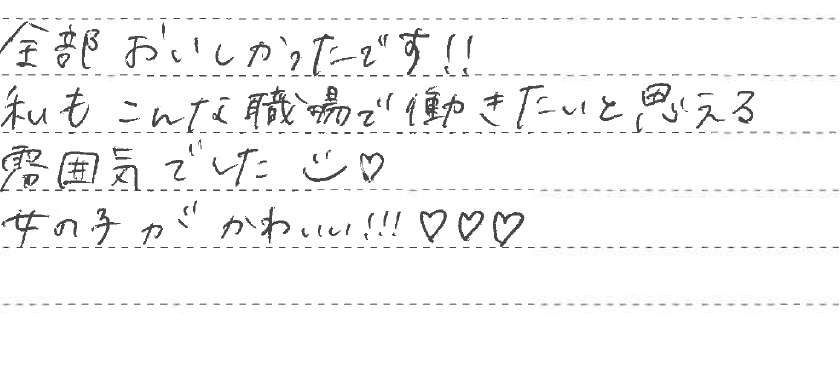 全部 おいしかったです!!
私も こんな職場で働きたいと思える
雰囲気でした ☺♡
女の子が かわいい!!! ♡♡♡